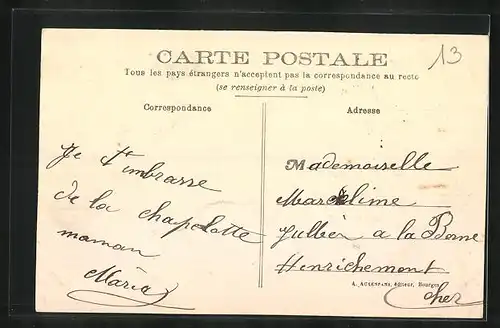 CARTE POSTALE
13
Tous les pays étrangers n'acceptent pas la correspondance au recto
(se renseigner à la poste)
Correspondance
Je t'imbrasse
de la chapelotte
maman
Maria
Adresse
Mademoiselle
Marcelime
a la Borne
Henrichemont
A. AUXENFANS, éditeur, Bourges
Cher